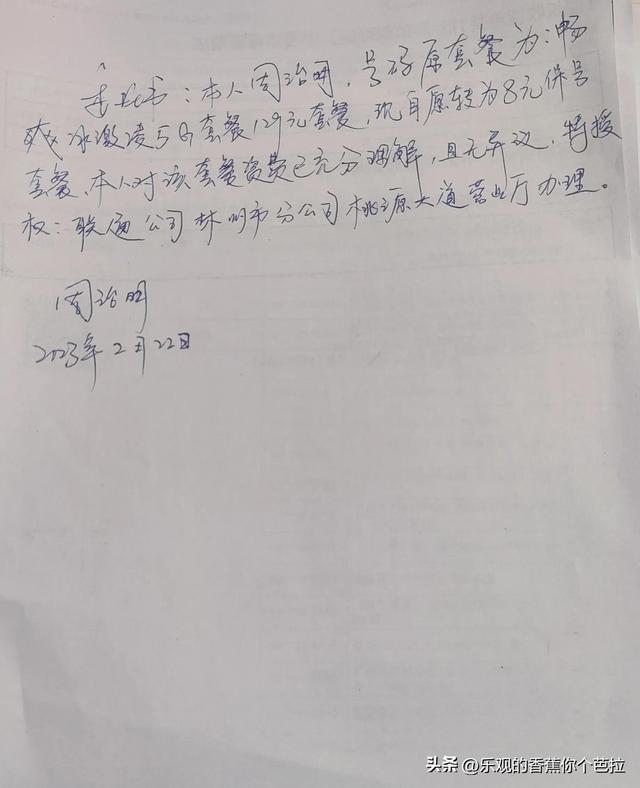 委托书：本人周治明，号码原套餐为：畅
爽冰激凌5G套餐129元套餐，现自愿转为8元保号
套餐、本人对该套餐资费已充分理解，且无异议，特授
权：联通公司林州市分公司桃源大道营业厅办理。
周治明
2023年2月22日
头条 @乐观的香蕉你个芭拉